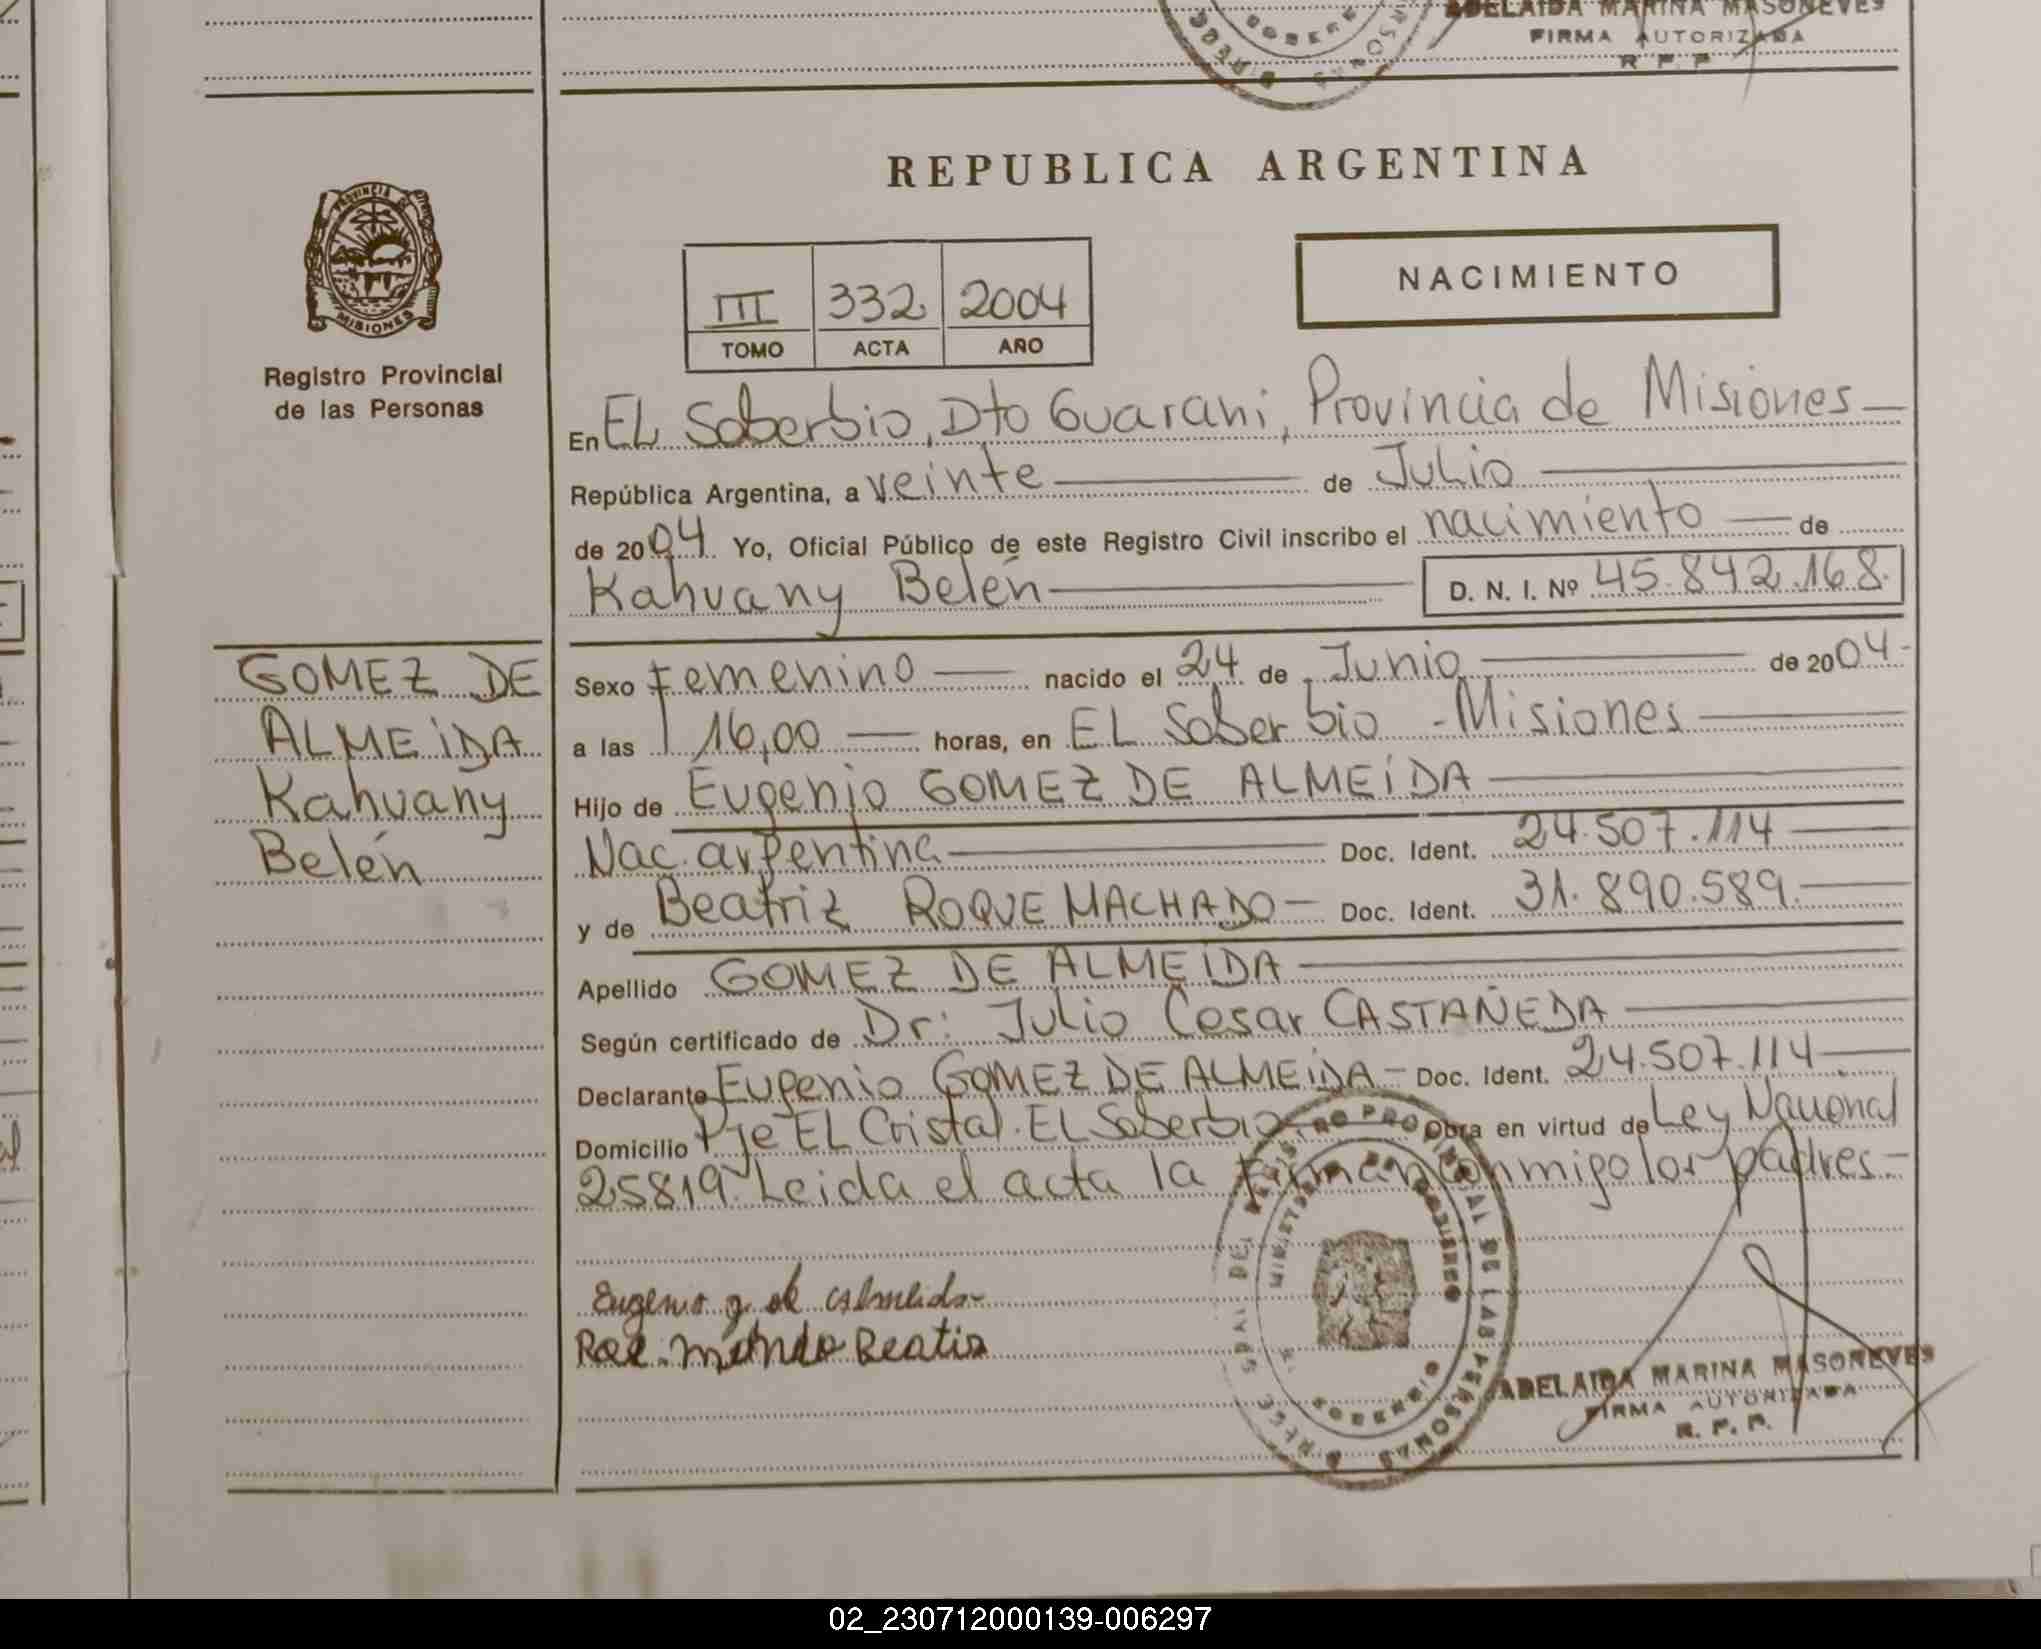 ADELAIDA MARINA MASONEVES
FIRMA AUTORIZADA
R. P. P.
REPUBLICA ARGENTINA
PROVINCIA DE
MISIONES
Registro Provincial
de las Personas
III 332 2004
TOMO ACTA AÑO
NACIMIENTO
En EL Soberbio, Dto Guarani, Provincia de Misiones
República Argentina, a veinte de Julio
de 2004 Yo, Oficial Público de este Registro Civil inscribo el nacimiento de
Kahuany Belén D. N. I. Nº 45.842.168.
GOMEZ DE
ALMEIDA
Kahuany
Belén
Sexo Femenino nacido el 24 de Junio de 2004
a las 16,00 horas, en EL Soberbio - Misiones
Hijo de Eugenio GOMEZ DE ALMEIDA
Nac. argentina Doc. Ident. 24.507.114
y de Beatriz ROQUE MACHADO Doc. Ident. 31.890.589.
Apellido GOMEZ DE ALMEIDA
Según certificado de Dr: Julio Cesar CASTAÑEDA
Declarante Eugenio GOMEZ DE ALMEIDA Doc. Ident. 24.507.114
Domicilio Pje EL Cristal. EL Soberbio Obra en virtud de Ley Nacional
25819. Leida el acta la firman conmigo los padres.
Eugenio g de Almeida
Beatriz
REGISTRO PROVINCIAL DE LAS PERSONAS
ADELAIDA MARINA MASONEVES
FIRMA AUTORIZADA
R. P. P.
02_230712000139-006297